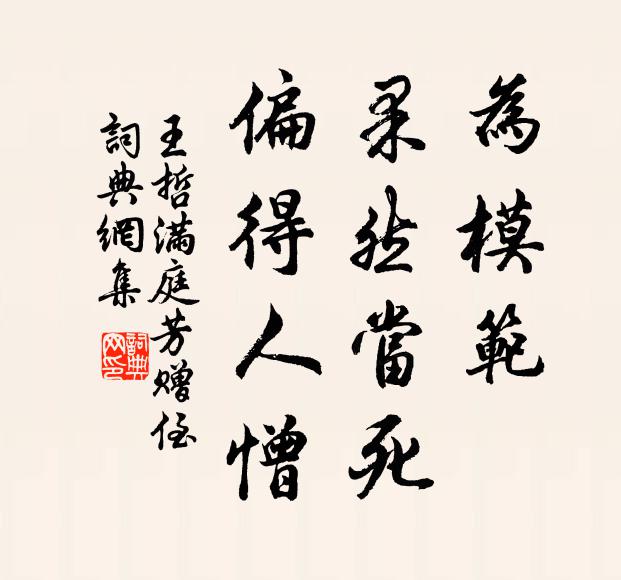 為模範
果然當死
偏得人憎
王哲滿庭芳贈侄
詞典網集
詞典网印